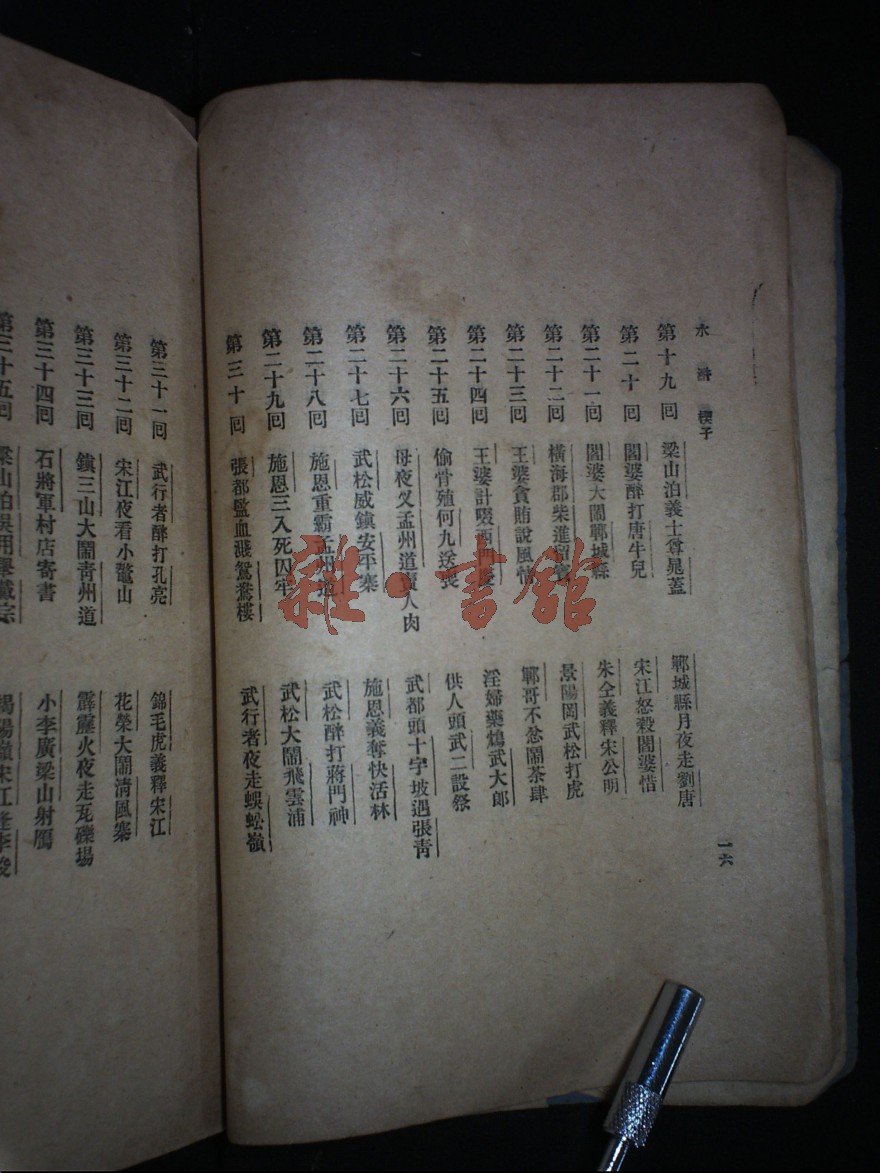 水滸 楔子 一六
第十九回 梁山泊義士尊晁蓋 鄆城縣月夜走劉唐
第二十回 閻婆醉打唐牛兒 宋江怒殺閻婆惜
第二十一回 閻婆大鬧鄆城縣 朱仝義釋宋公明
第二十二回 橫海郡柴進留賓 景陽岡武松打虎
第二十三回 王婆貪賄說風情 鄆哥不忿鬧茶肆
第二十四回 王婆計啜西門慶 淫婦藥鴆武大郎
第二十五回 偷骨殖何九送喪 供人頭武二設祭
第二十六回 母夜叉孟州道賣人肉 武都頭十字坡遇張青
第二十七回 武松威鎮安平寨 施恩義奪快活林
第二十八回 施恩重霸孟州道 武松醉打蔣門神
第二十九回 施恩三入死囚牢 武松大鬧飛雲浦
第三十回 張都監血濺鴛鴦樓 武行者夜走蜈蚣嶺
第三十一回 武行者醉打孔亮 錦毛虎義釋宋江
第三十二回 宋江夜看小鼇山 花榮大鬧清風寨
第三十三回 鎮三山大鬧青州道 霹靂火夜走瓦礫場
第三十四回 石將軍村店寄書 小李廣梁山射雁
第三十五回 梁山泊吳用舉戴宗 揭陽嶺宋江逢李俊
雜·書館